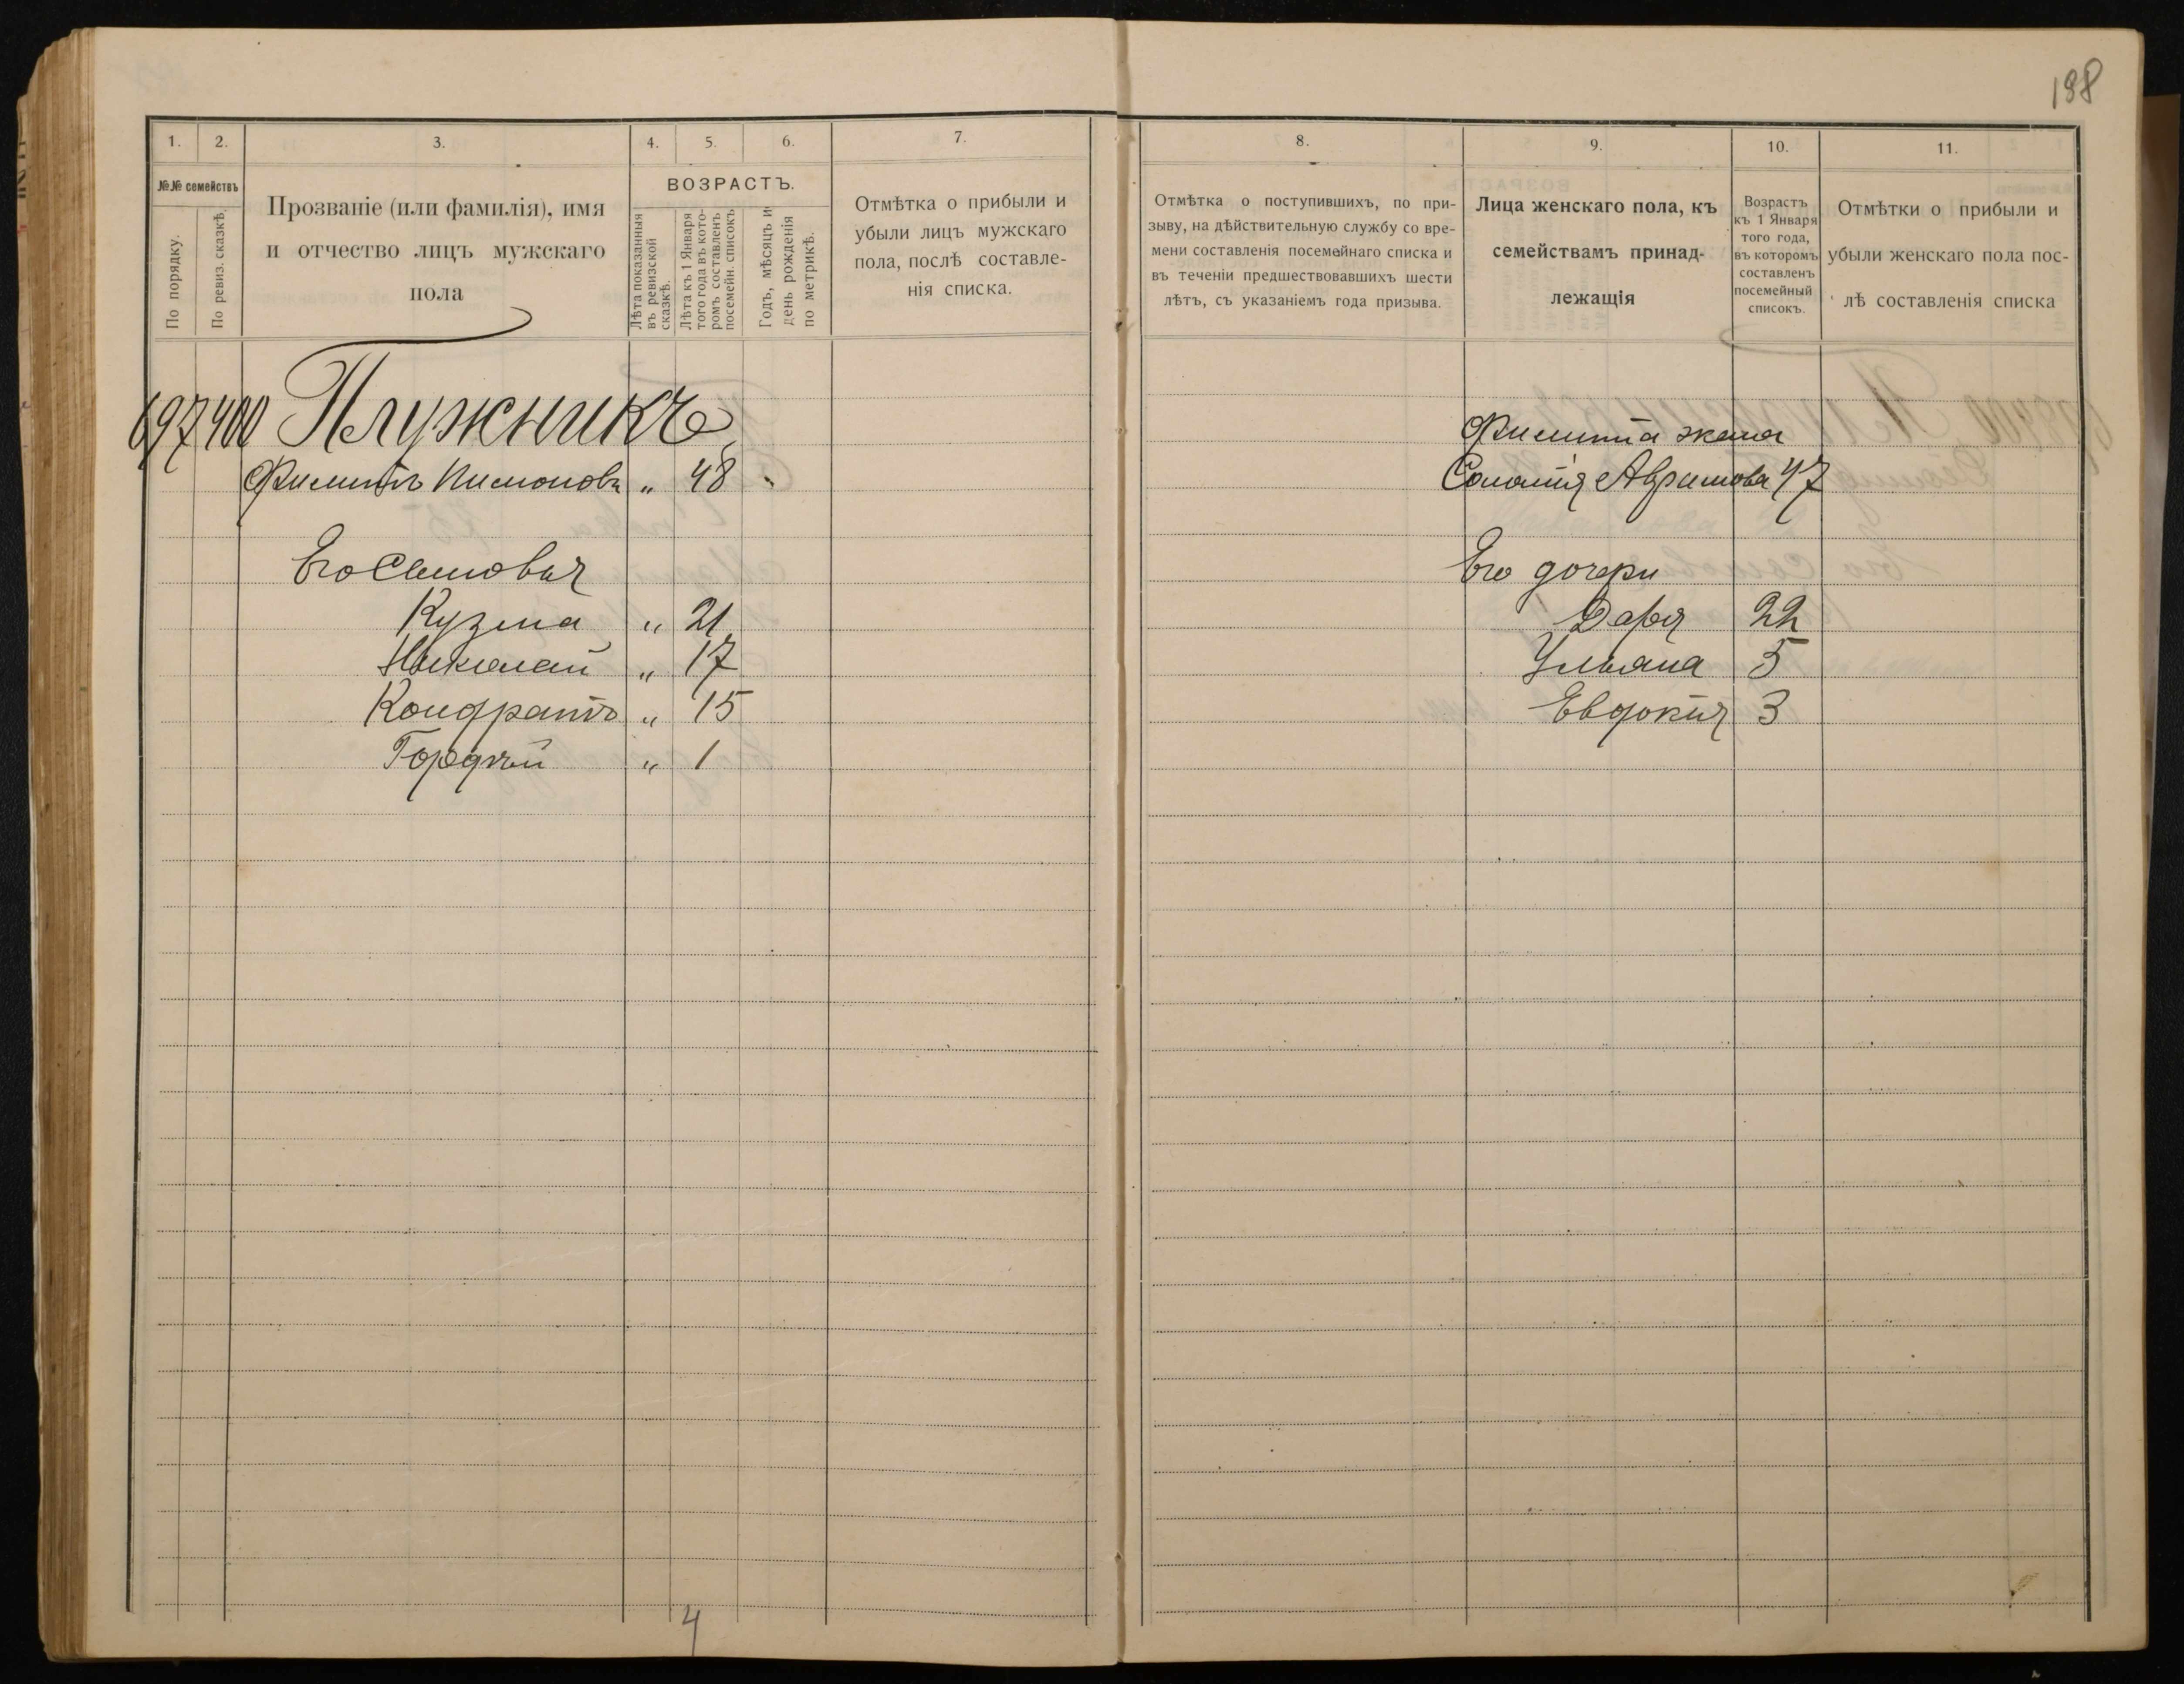 198
1. 2. 3. 4. 5. 6. 7.
№№ семействъ
По порядку.
По ревиз. сказкѣ.
Прозваніе (или фамилія), имя
и отчество лицъ мужскаго
пола
ВОЗРАСТЪ.
Лѣта показанныя
въ ревизской
сказкѣ.
Лѣта къ 1 Января
того года въ кото-
ромъ составленъ
посемейн. списокъ
Годъ, мѣсяцъ и
день рожденія
по метрикѣ.
Отмѣтка о прибыли и
убыли лицъ мужскаго
пола, послѣ составле-
нія списка.
697 400 Плужникъ
Филиппъ Пимоновъ " 48
Его Сыновья
Кузма " 21
Николай " 17
Кондратъ " 15
Гордѣй " 1
4
8. 9. 10. 11.
Отмѣтка о поступившихъ, по при-
зыву, на дѣйствительную службу со вре-
мени составленія посемейнаго списка и
въ теченіи предшествовавшихъ шести
лѣтъ, съ указаніемъ года призыва.
Лица женскаго пола, къ
семействамъ принад-
лежащія
Возрастъ
къ 1 Января
того года,
въ которомъ
составленъ
посемейный
списокъ.
Отмѣтки о прибыли и
убыли женскаго пола пос-
лѣ составленія списка
Филиппа жена
Соломія 47
Его дочери
Дарья 22
Ульяна 5
Евдокия 3